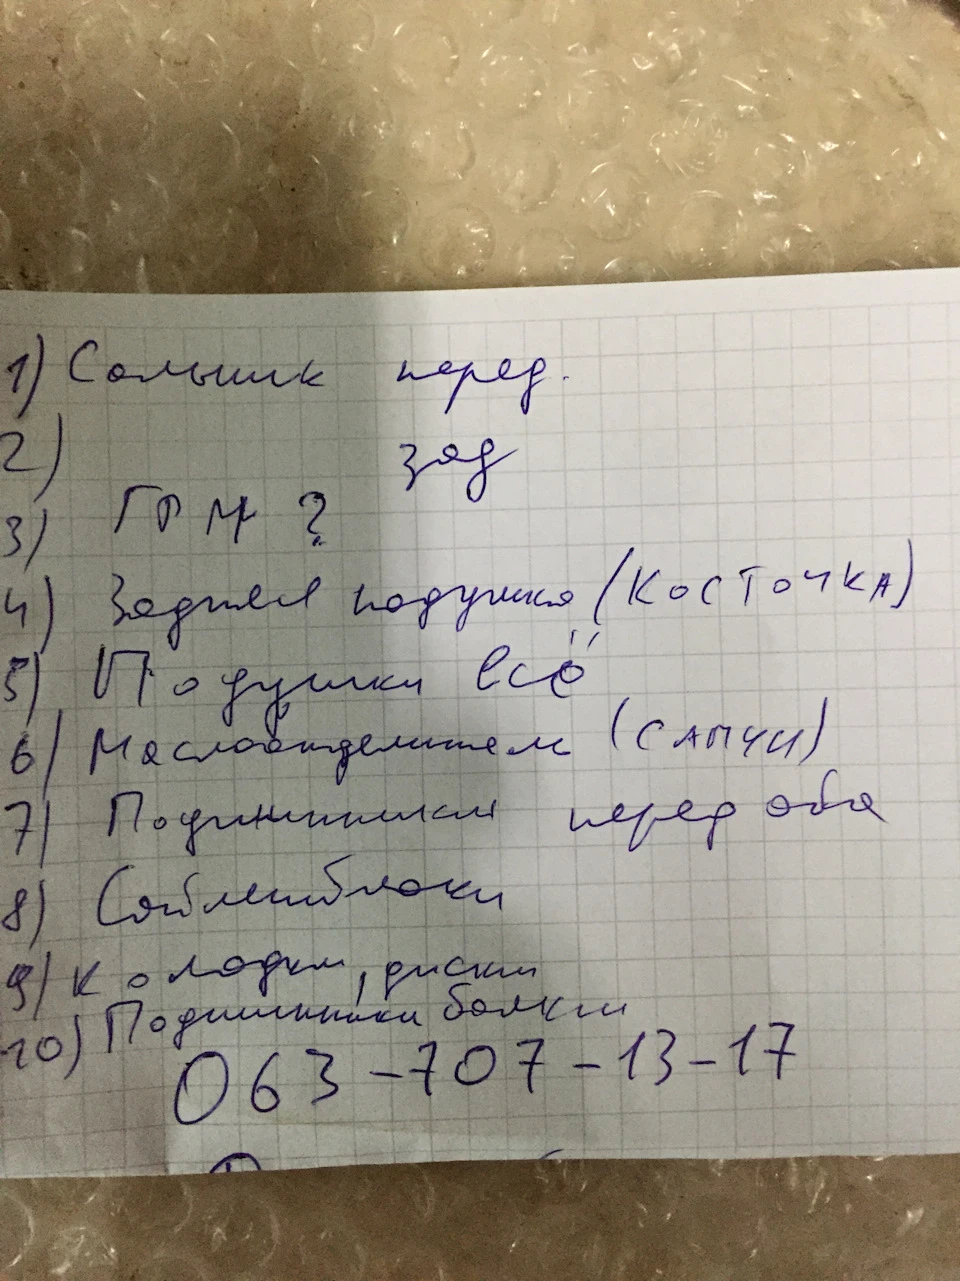 1) Сальник перед.
2) зад
3) ГРМ ?
4) Задняя подушка (КОСТОЧКА)
5) Подушки всё
6) Маслоотделитель (САПУН)
7) Подшипники перед оба
8) Сайлентблоки
9) Колодки, диски
10) Подшипники балки
063-707-13-17